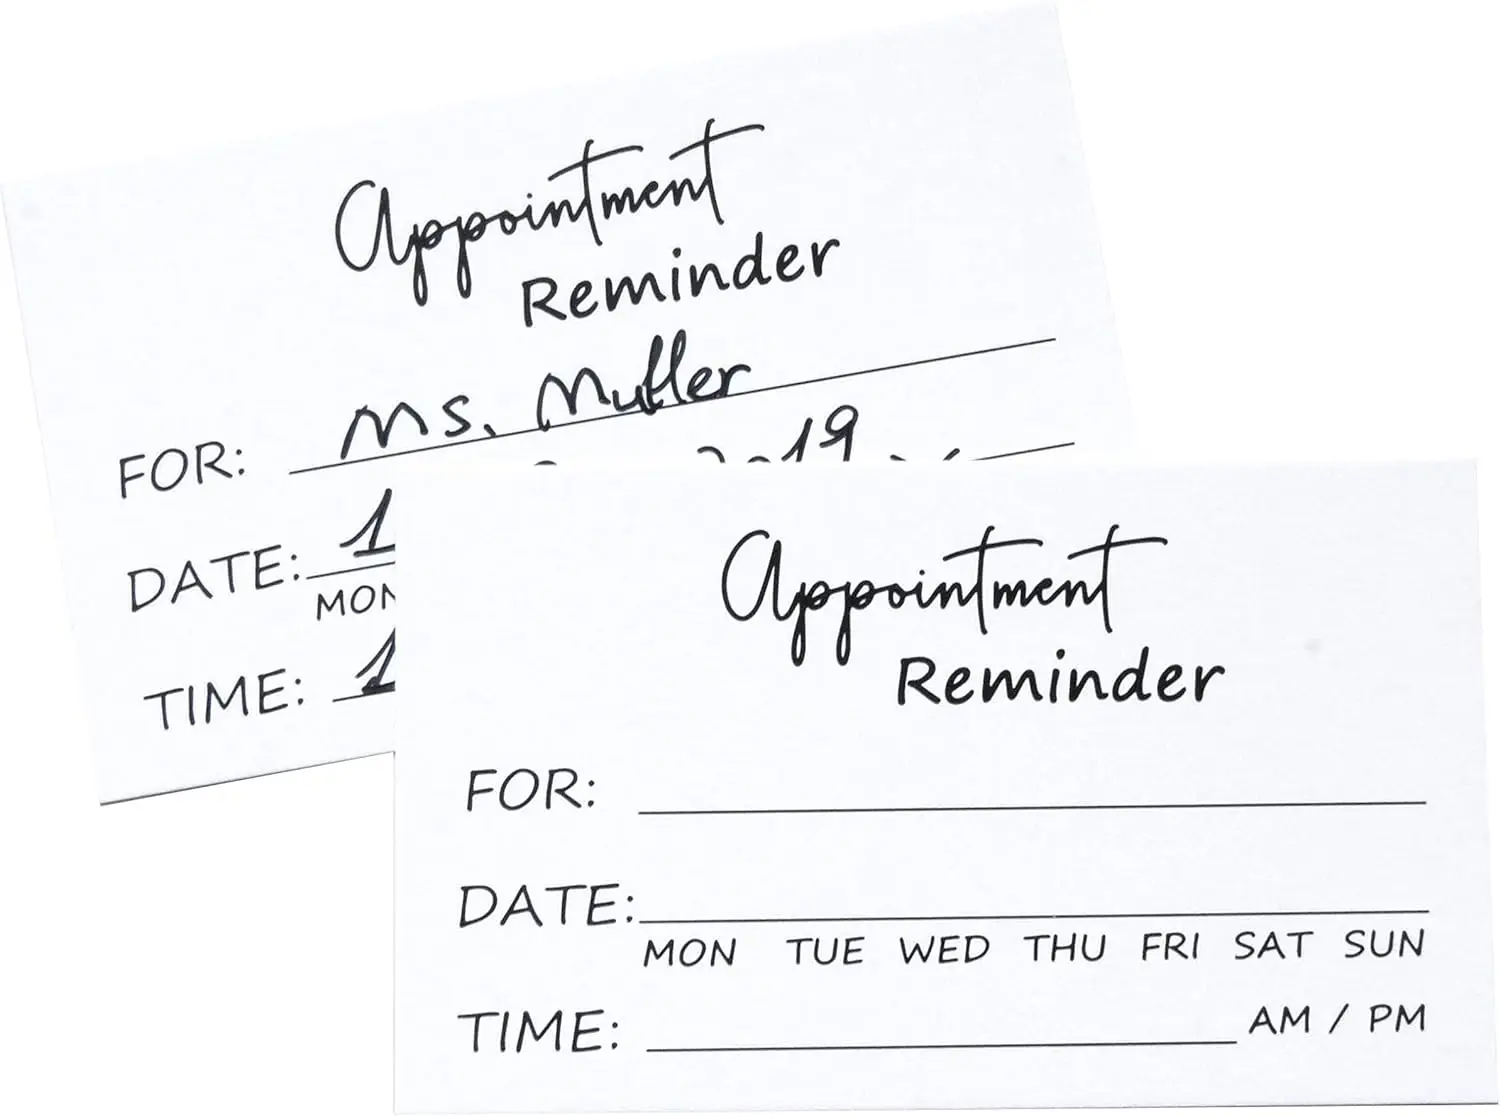 Appointment
Reminder
FOR: Ms. Muller
19
DATE: 1
MON
TIME: 1
Appointment
Reminder
FOR:
DATE:
MON TUE WED THU FRI SAT SUN
TIME: AM / PM